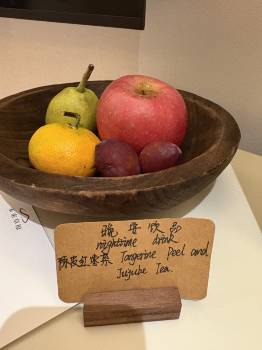 晚安饮品
nightime drink
陈皮红枣茶 Tangerine Peel and
Jujube Tea.